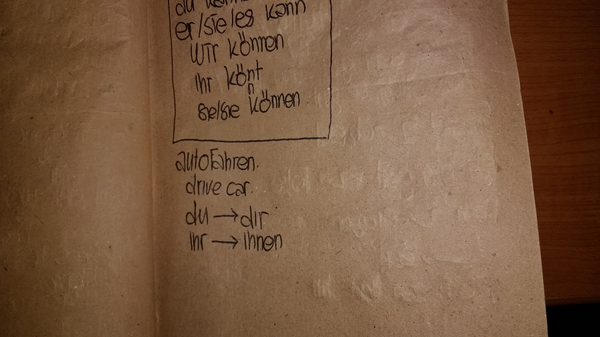 du kann
er/sie/es kann
wir können
Ihr könt
n
sie/sie können
autoFahren.
drive car.
du → dir
Ihr → ihnen